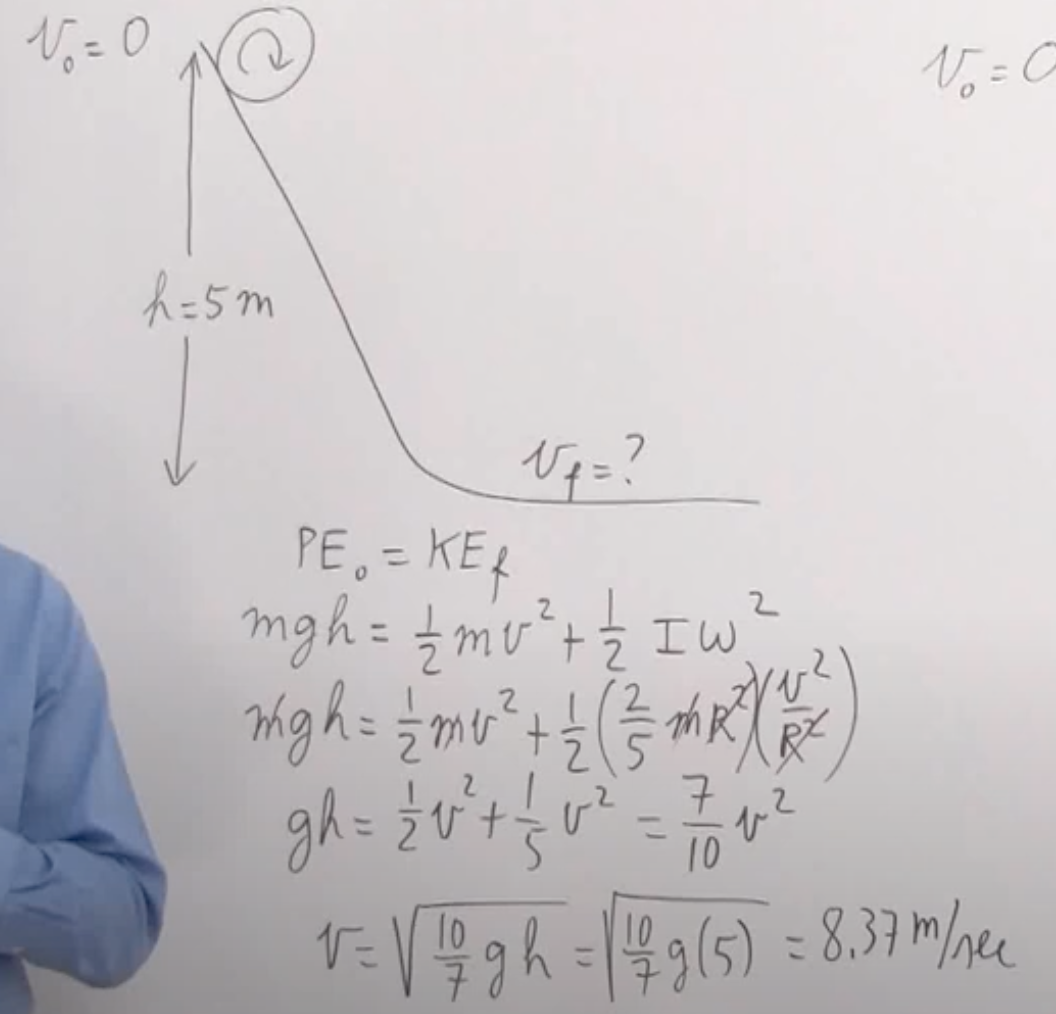 v₀ = 0
v₀ = 0
h = 5 m
v_f = ?
PE₀ = KE_f
mgh = 1/2 mv² + 1/2 Iω²
mgh = 1/2 mv² + 1/2 (2/5 mR²)(v²/R²)
gh = 1/2 v² + 1/5 v² = 7/10 v²
v = √(10/7 gh) = √(10/7 g(5)) = 8.37 m/sec